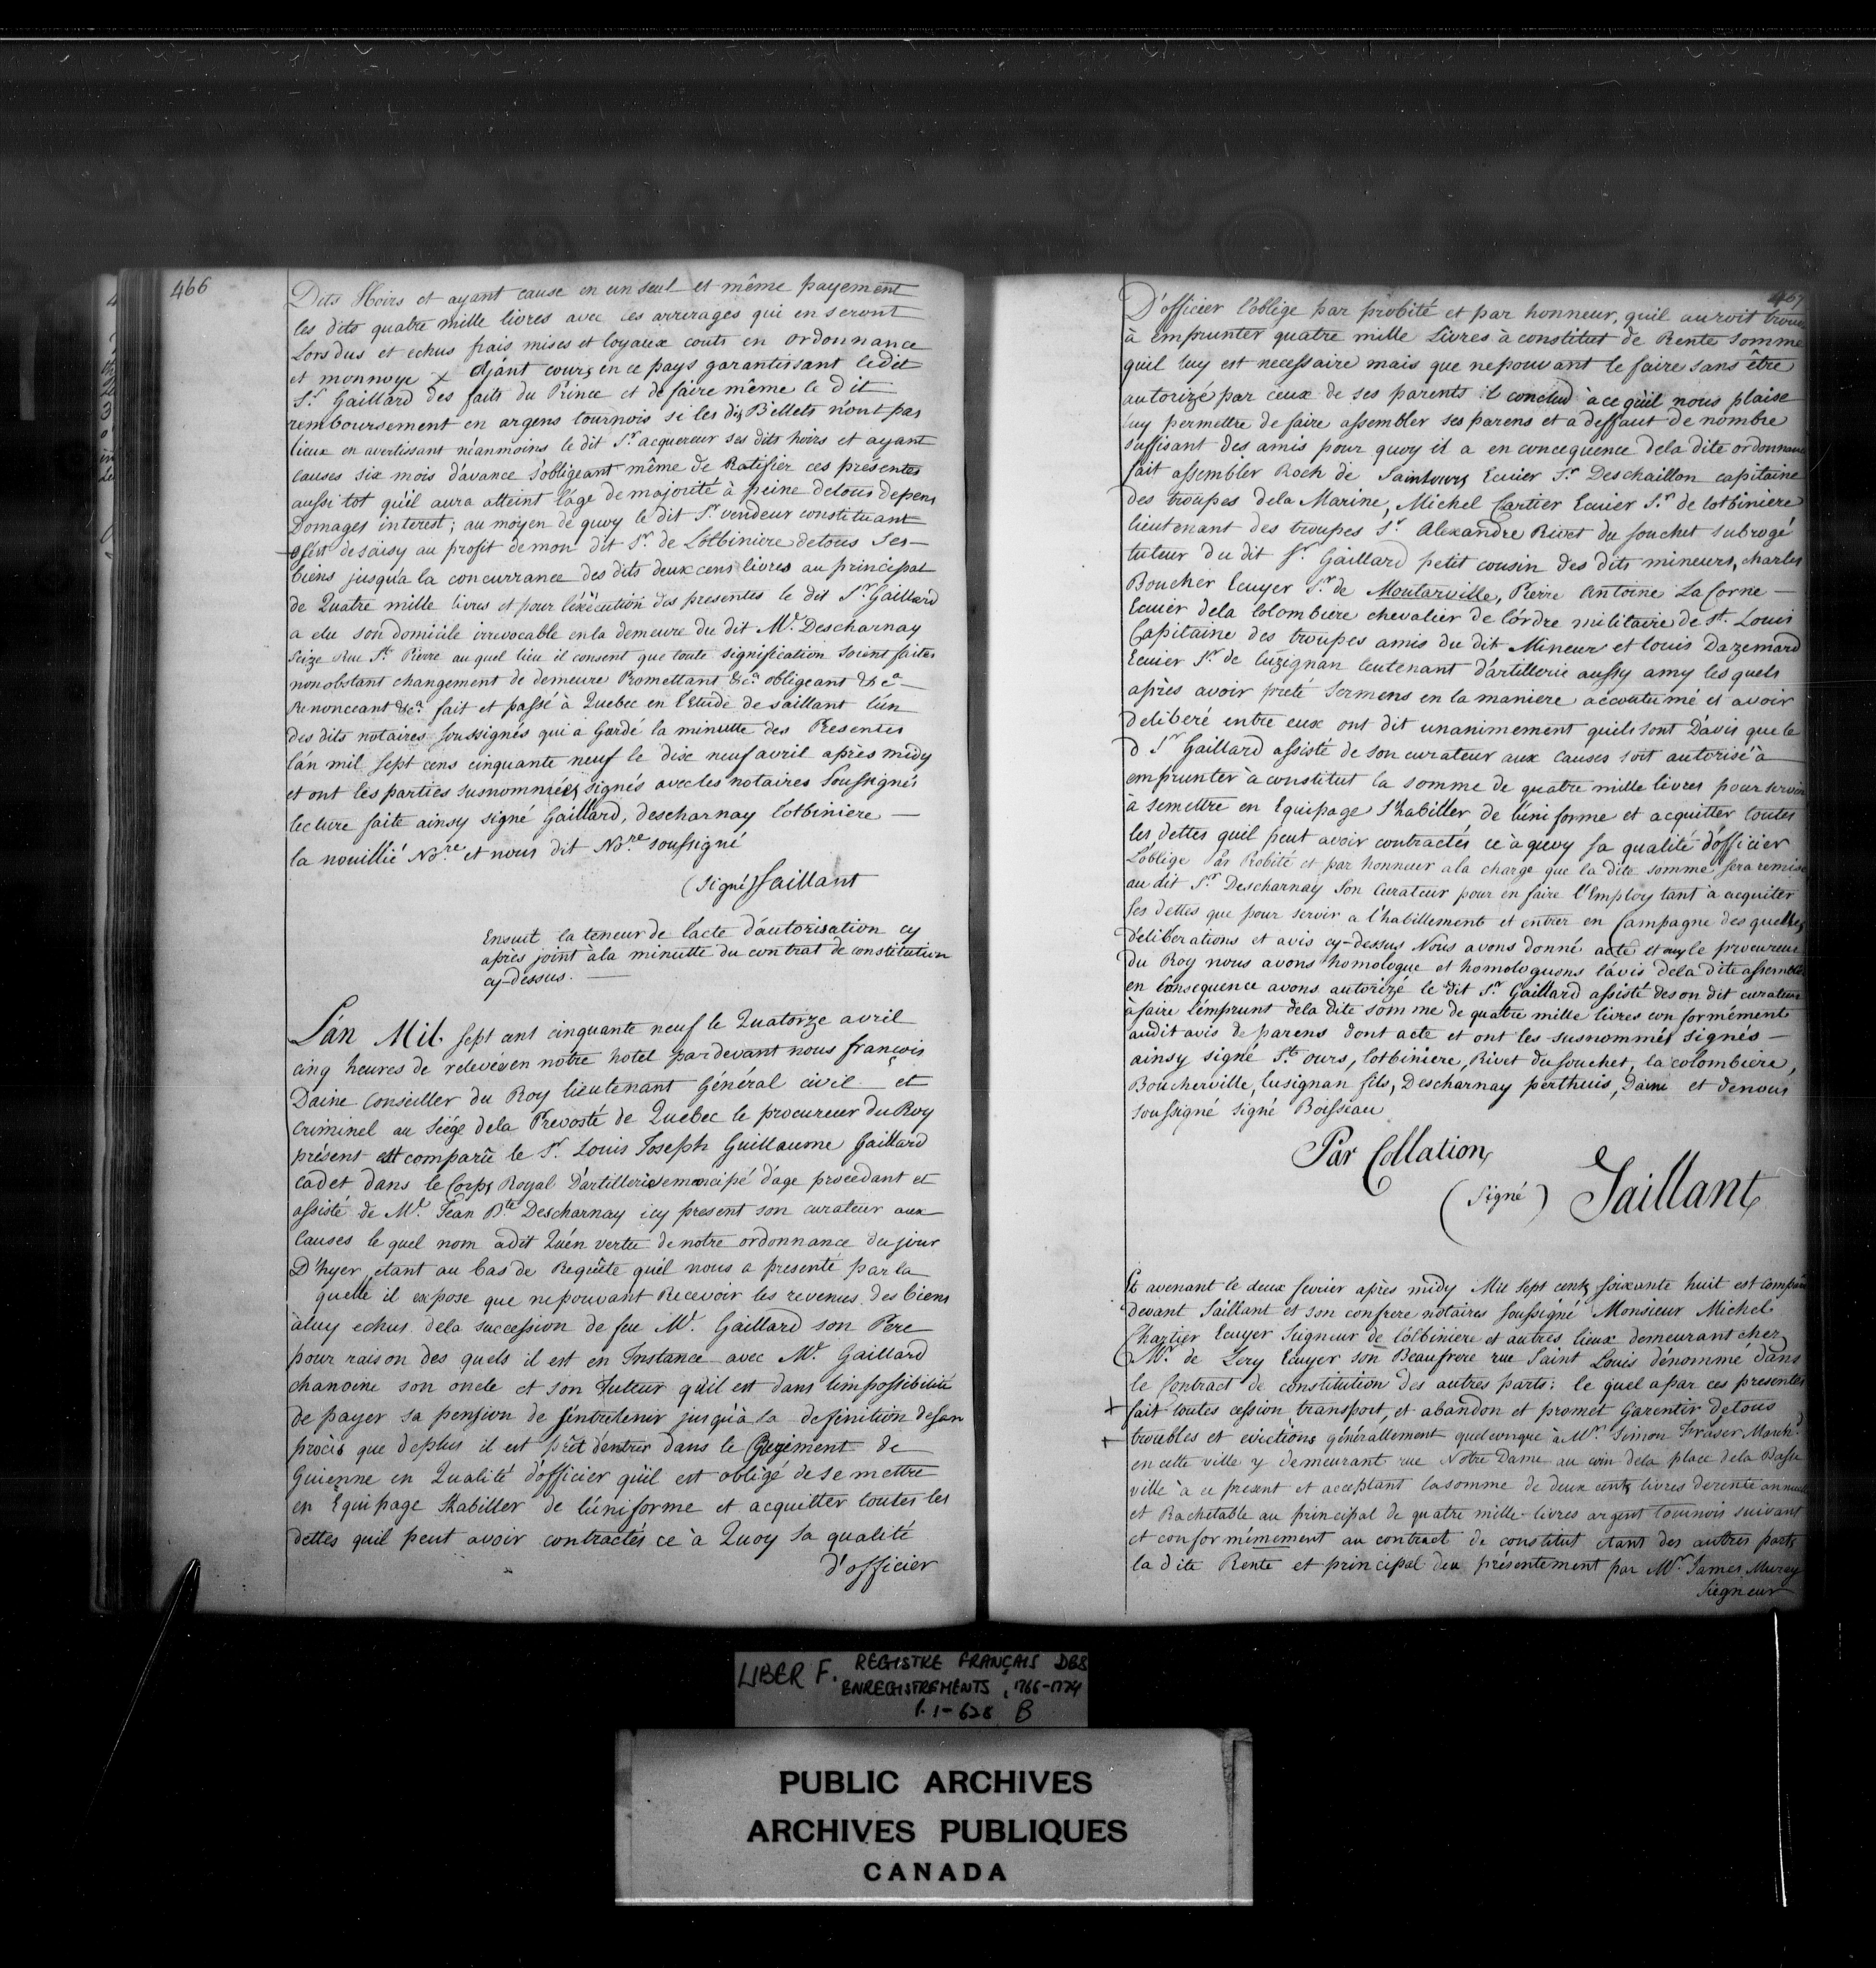 466
Dits Hoirs et ayant cause en un seul et même payement
les dits quatre mille livres avec les arrerages qui en seront
Lors dus et echus frais mises et loyaux couts en ordonnance
et monnoye x Ajánt cours en ce pays garantissant ledit
Sr. Gaillard des faits du Prince et de faire même le dit
remboursement en argens tournois si les dis Billets n'ont pas
lieux en avertissant néanmoins le dit Sr. acquereur ses dits hoirs et ayant
causes six mois d'avance s'obligeant même de Ratifier ces présentes
aussi tot qu'il aura atteint l'âge de majorité à peine detous depens
Domages interest; au moyen de quoy le dit Sr. vendeur constituant
s'est desaisy au profit de mon dit Sr. de Lotbiniere detous ses
biens jusqu'a la concurrance des dits deux cens livres au principal
de Quatre mille livres et pour l'exécution des presentes le dit Sr. Gaillard
a elu son domicile irrevocable en la demeure du dit Mr. Descharnay
Seize Rue St. Pierre au quel lieu il consent que toute signification soient faites
nonobstant changement de demeure Promettant &ca. obligeant &ca
Renonceant &ca. fait et passé à Quebec en l'Etude de saillant l'ún
des dits notaires soussignés qui a Gardé la minutte des Presentes
l'án mil sept cens cinquante neuf le dix neuf avril après midy
et ont les parties susnommées signés avec les notaires soussignés
lecture faite ainsy signé Gaillard, descharnay lotbiniere —
la nouillié Nore. et nous dit Nore. soussigné
(Signé) Saillant
Ensuit la teneur de l'acte d'autorisation cy
après joint à la minutte du contrat de constitution
cy-dessus. —
L'án Mil sept cent cinquante neuf le Quatorze avril
cinq heures de relevée en notre hotel pardevant nous françois
Daine Conseiller du Roy lieutenant Général civil et
criminel au Siége dela Prevosté de Quebec le procureur Du Roy
présent est comparu le Sr. Louis Joseph Guillaume Gaillard
cadet dans le Corps Royal D'artillerie emancipé d'age procedant et
assisté de Mr. Jean Bte. Descharnay icy present son curateur aux
Causes le quel nom a dit Qu'én vertu de notre ordonnance du jour
D'hyer etant au bas de Requête qu'il nous a presenté par la
quelle il expose que ne pouvant Recevoir les revenus des biens
à luy echus dela succession de feu Mr. Gaillard son Pere
pour raison des quels il est en Instance avec Mr. Gaillard
chanoine son oncle et son Tuteur qu'il est dans l'impossibilité
de payer sa pension de s'entretenir jusqu'à la definition de son
procès que deplus il est prêt d'entrer dans le Regiment de
Guienne en Qualité d'officier qu'il est obligé de se mettre
en Equipage s'habiller de l'úniforme et acquitter toutes les
dettes quil peut avoir contractés ce à Quoy sa qualité
d'officier
467
D'officier l'oblige par probité et par honneur, quil auroit trouvé
à emprunter quatre mille Livres à constitut de Rente somme
quil luy est necessaire mais que nepouvant le faire sans être
autorizé par ceux de ses parents il conclud à ce qu'il nous plaise
luy permettre de faire assembler ses parens et a deffaut de nombre
suffisant des amis pour quoy il a en concequence dela dite ordonnance
fait assembler Roch de Saintours Ecuier Sr. Deschaillon capitaine
des troupes dela Marine, Michel Cartier Ecuier Sr. de lotbiniere
lieutenant des troupes Sr. Alexandre Rivet du souchet subrogé
tuteur du dit Sr. Gaillard petit cousin des dits mineurs, charles
Boucher Ecuyer Sr. de Montarville, Pierre Antoine La Corne —
Ecuier dela Colombiere chevalier de l'órdre militaire de St. Louis
Capitaine des troupes amis du dit Mineur et louis Dazemard
Ecuier Sr. de luzignan leutenant d'artillerie aussy amy les quels
après avoir preté Sermens en la maniere accoutumé et avoir
deliberé entre eux ont dit unanimement quils sont D'avis que le
d Sr. Gaillard assisté de son curateur aux causes soit autorisé à
emprunter à constitut la somme de quatre mille livres pour servir
à semettre en Equipage s'habiller de l'úniforme et acquitter toutes
les dettes quil peut avoir contractés ce à quoy sa qualité d'officier
L'oblige Par Probité et par honneur ala charge que la dite somme sera remise
au dit Sr. Descharnay son Curateur pour en faire l'Employ tant à acquiter
ses dettes que pour servir a l'habillement et entrer en Campagne des quelles
déliberations et avis cy-dessus Nous avons donné acte et ouy le procureur
du Roy nous avons homologue et homologuons l'ávis dela dite assemblée
en Consequence avons autorizé le dit Sr. Gaillard assisté deson dit curateur
à faire l'émprunt dela dite somme de quatre mille livres conformément
audit avis de parens dont acte et ont les susnommés signés —
ainsy signé St. ours, lotbiniere, Rivet du souchet, la colombiere,
Boucherville, lusignan fils, Descharnay perthuis, Daine et denous
soussigné signé Boisseau
Par Collation
(Signé) Saillant
Et avenant le deux fevrier après midy Mil Sept cents soixante huit est comparu
devant Saillant et son confrere notaires soussigné Monsieur Michel
Chartier Ecuyer Seigneur de l'otbiniere et autres lieux demeurant chez
Mr. de Lery Ecuyer son Beaufrere rue Saint Louis dénommé dans
le Contract de constitution des autres parts: le quel apar ces presentes
fait toutes cession transport, et abandon et promet Garentir detous
troubles et evictions générallement quelconque à Mr. Simon Fraser March.d
en cette ville y demeurant rue Notre Dame au coin dela place dela Basse
ville à ce present et acceptant lasomme de deux cents livres derente annuelle
et Rachetable au principal de quatre mille livres argent tournois suivant
et conformémement au contract de constitut etant des autres parts
la dite Rente et principal deu présentement par Mr. James Murray
Siegneur
LIBER F. REGISTRE FRANÇAIS DES
ENREGISTREMENTS, 1766-1774
P. 1-628 B
PUBLIC ARCHIVES
ARCHIVES PUBLIQUES
CANADA